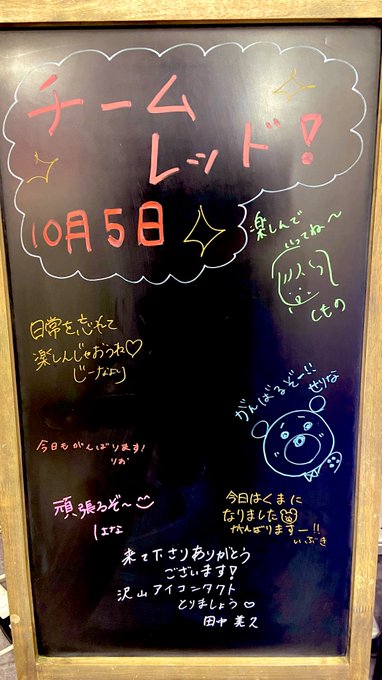 チーム
レッド！
10月5日
楽しんで
いってね〜
くもの
日常を忘れて
楽しんじゃおうね♡
じーなより
がんばるぞー!!
せりな
今日もがんばります！
りお
頑張るぞ〜
しょな
今日はくまに
なりました
がんばりますー!!
いぶき
来て下さりありがとう
ございます！
沢山アイコンタクト
とりましょう♡
田中美久